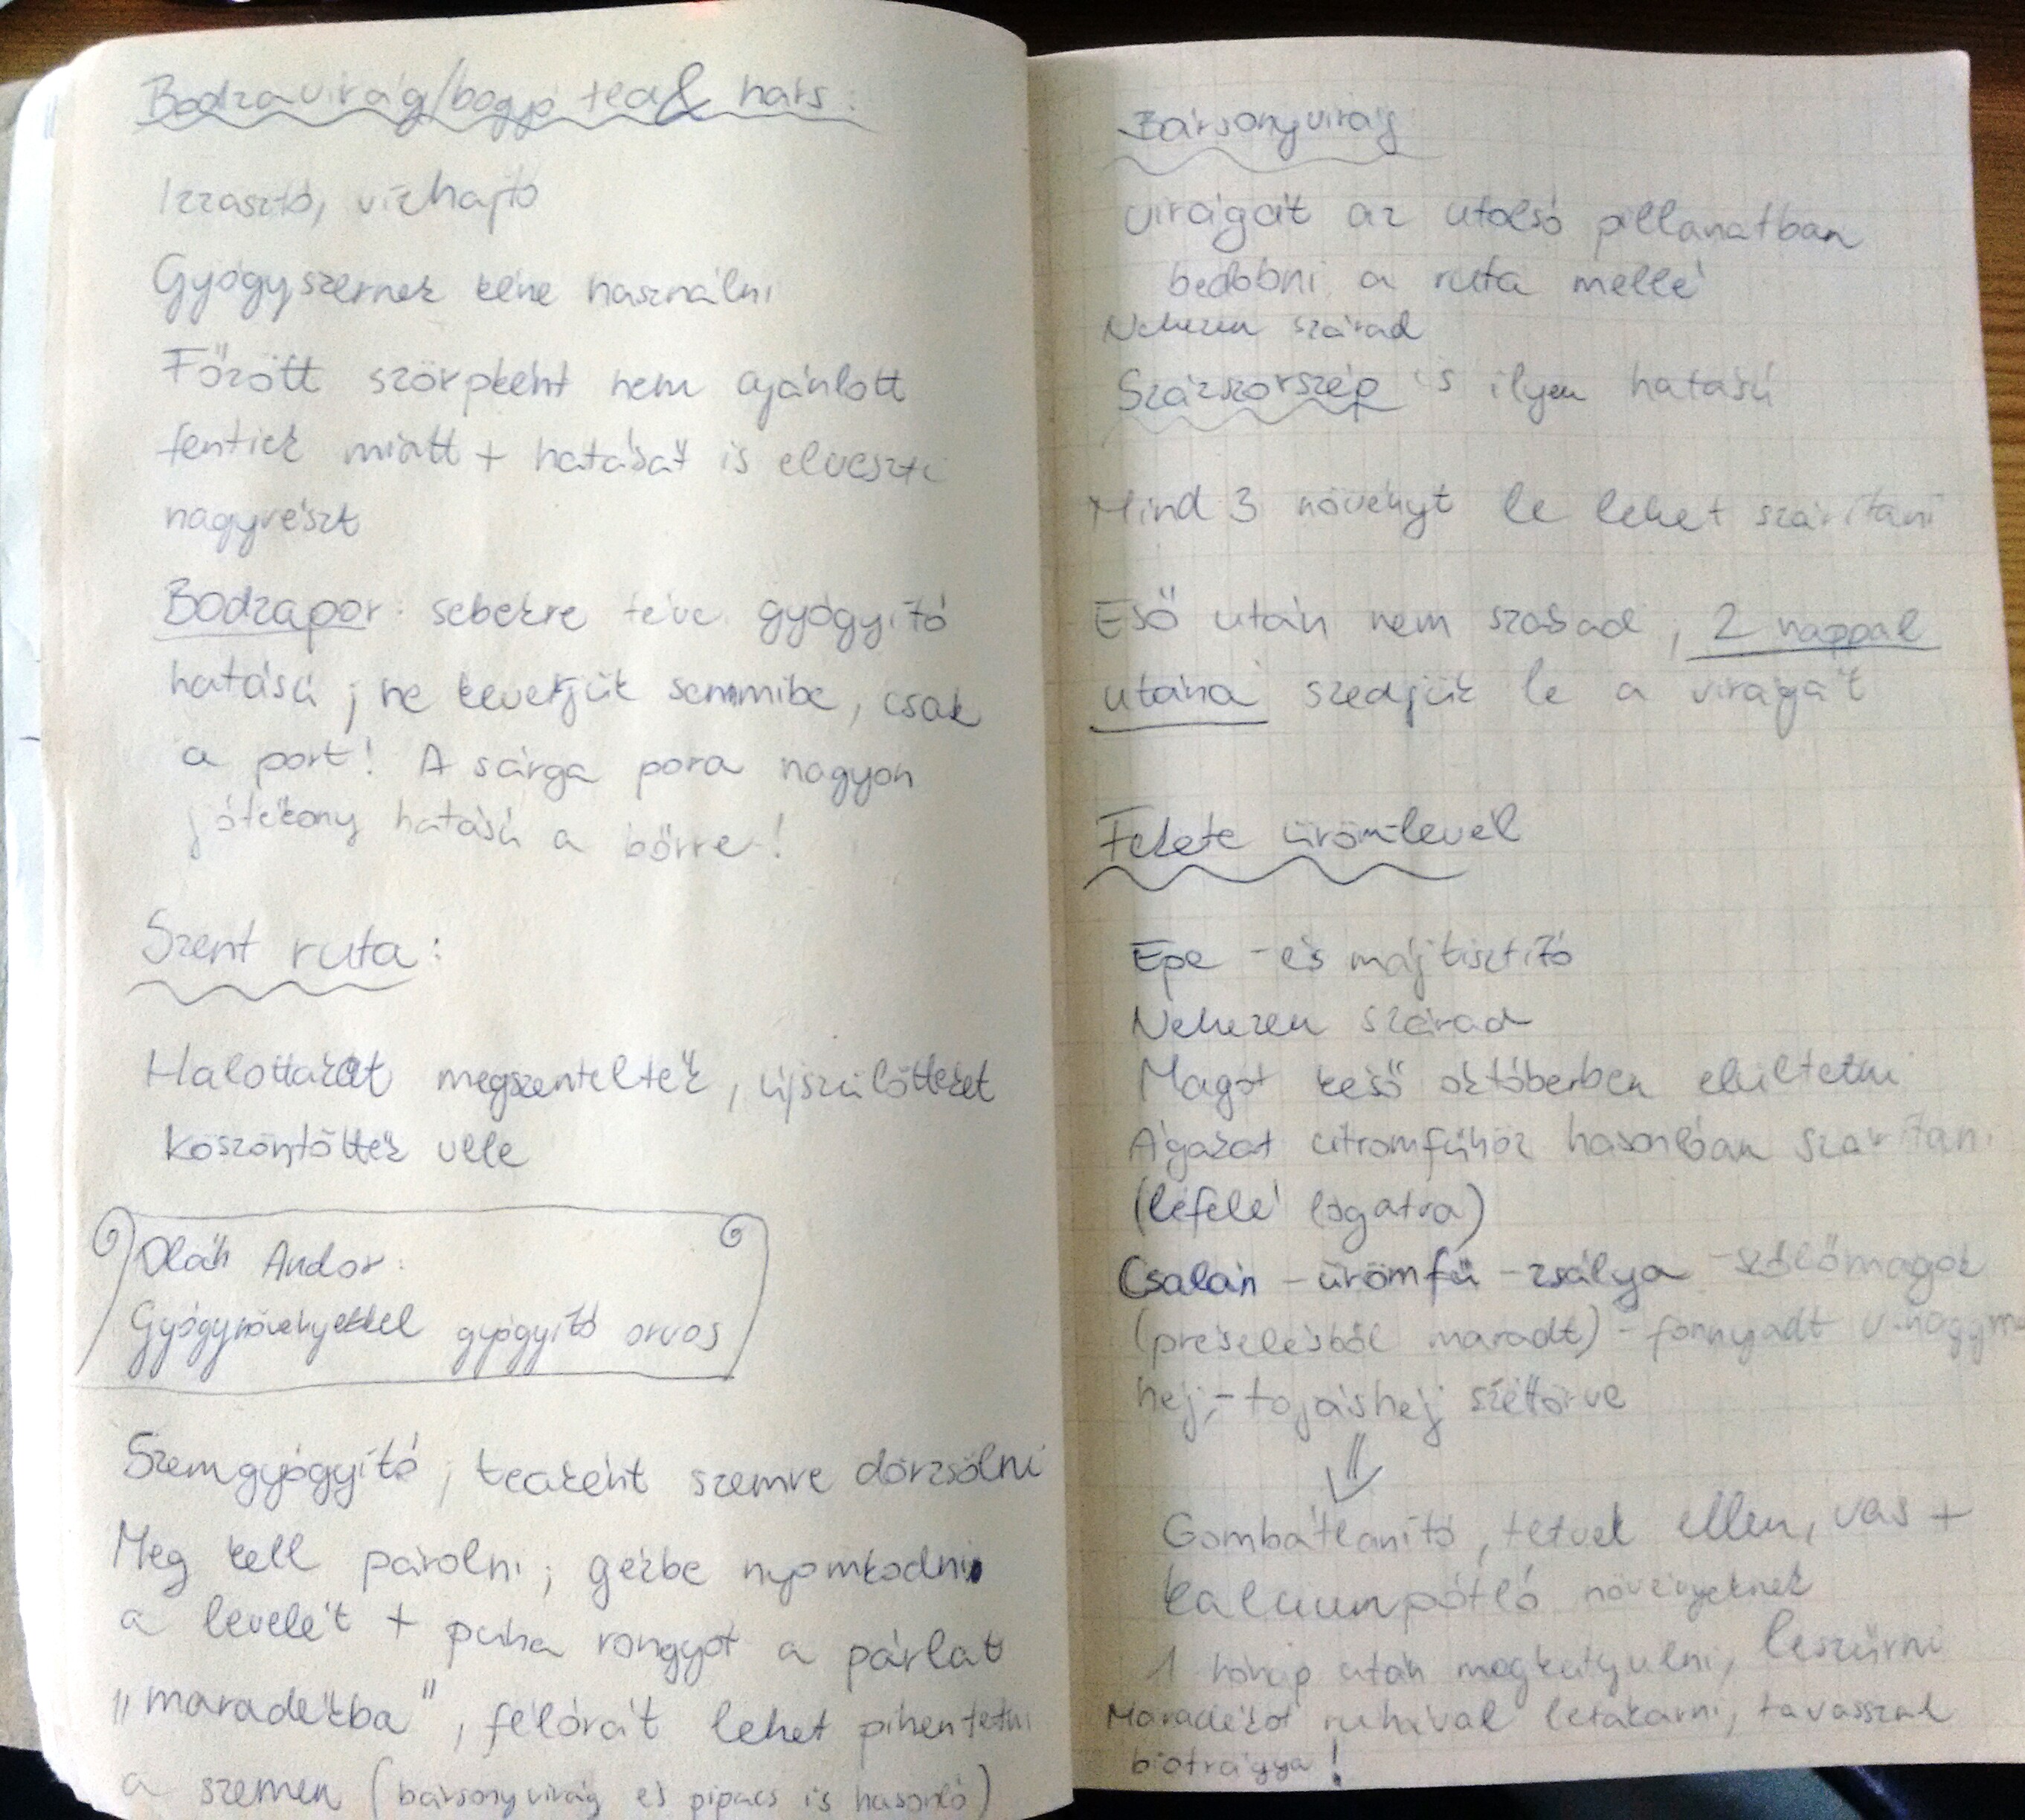 Bodzavirág/bogyó tea & hárs:
Izzasztó, vízhajtó
Gyógyszernek kéne használni
Főzött szörpként nem ajánlott
fentiek miatt + hatását is elveszti
nagyrészt
Bodzapor: sebekre téve gyógyító
hatású; ne keverjük semmibe, csak
a port! A sárga pora nagyon
jótékony hatású a bőrre!
Szent ruta:
Halottakat megszentelték, újszülötteket
köszöntöttek vele
Oláh Andor:
Gyógynövényekkel gyógyító orvos
Szemgyógyító; teaként szemre dörzsölni
Meg kell párolni; gézbe nyomkodni
a levelét + puha rongyot a párlat
"maradékba", félórát lehet pihentetni
a szemen (bársonyvirág és pipacs is hasonló)
Bársonyvirág
virágát az utolsó pillanatban
bedobni a ruta mellé
Nehezen szárad
Százszorszép is ilyen hatású
Mind 3 növényt le lehet szárítani
Eső után nem szabad, 2 nappal
utána szedjük le a virágát
Fekete ürömlevél
Epe - és májtisztító
Nehezen szárad
Magot késő októberben elültetni
Ágakat citromfűhöz hasonlóan szárítani
(lefelé lógatva)
Csalán - ürömfű - zsálya - szőlőmagok
(préselésből maradt) - fonnyadt
héj, - tojáshéj széttörve
Gombátlanító, tetvek ellen, vas +
kalciumpótló növényeknek
1 hónap után leszűrni
Maradékot ruhával letakarni, tavasszal
biotrágya!